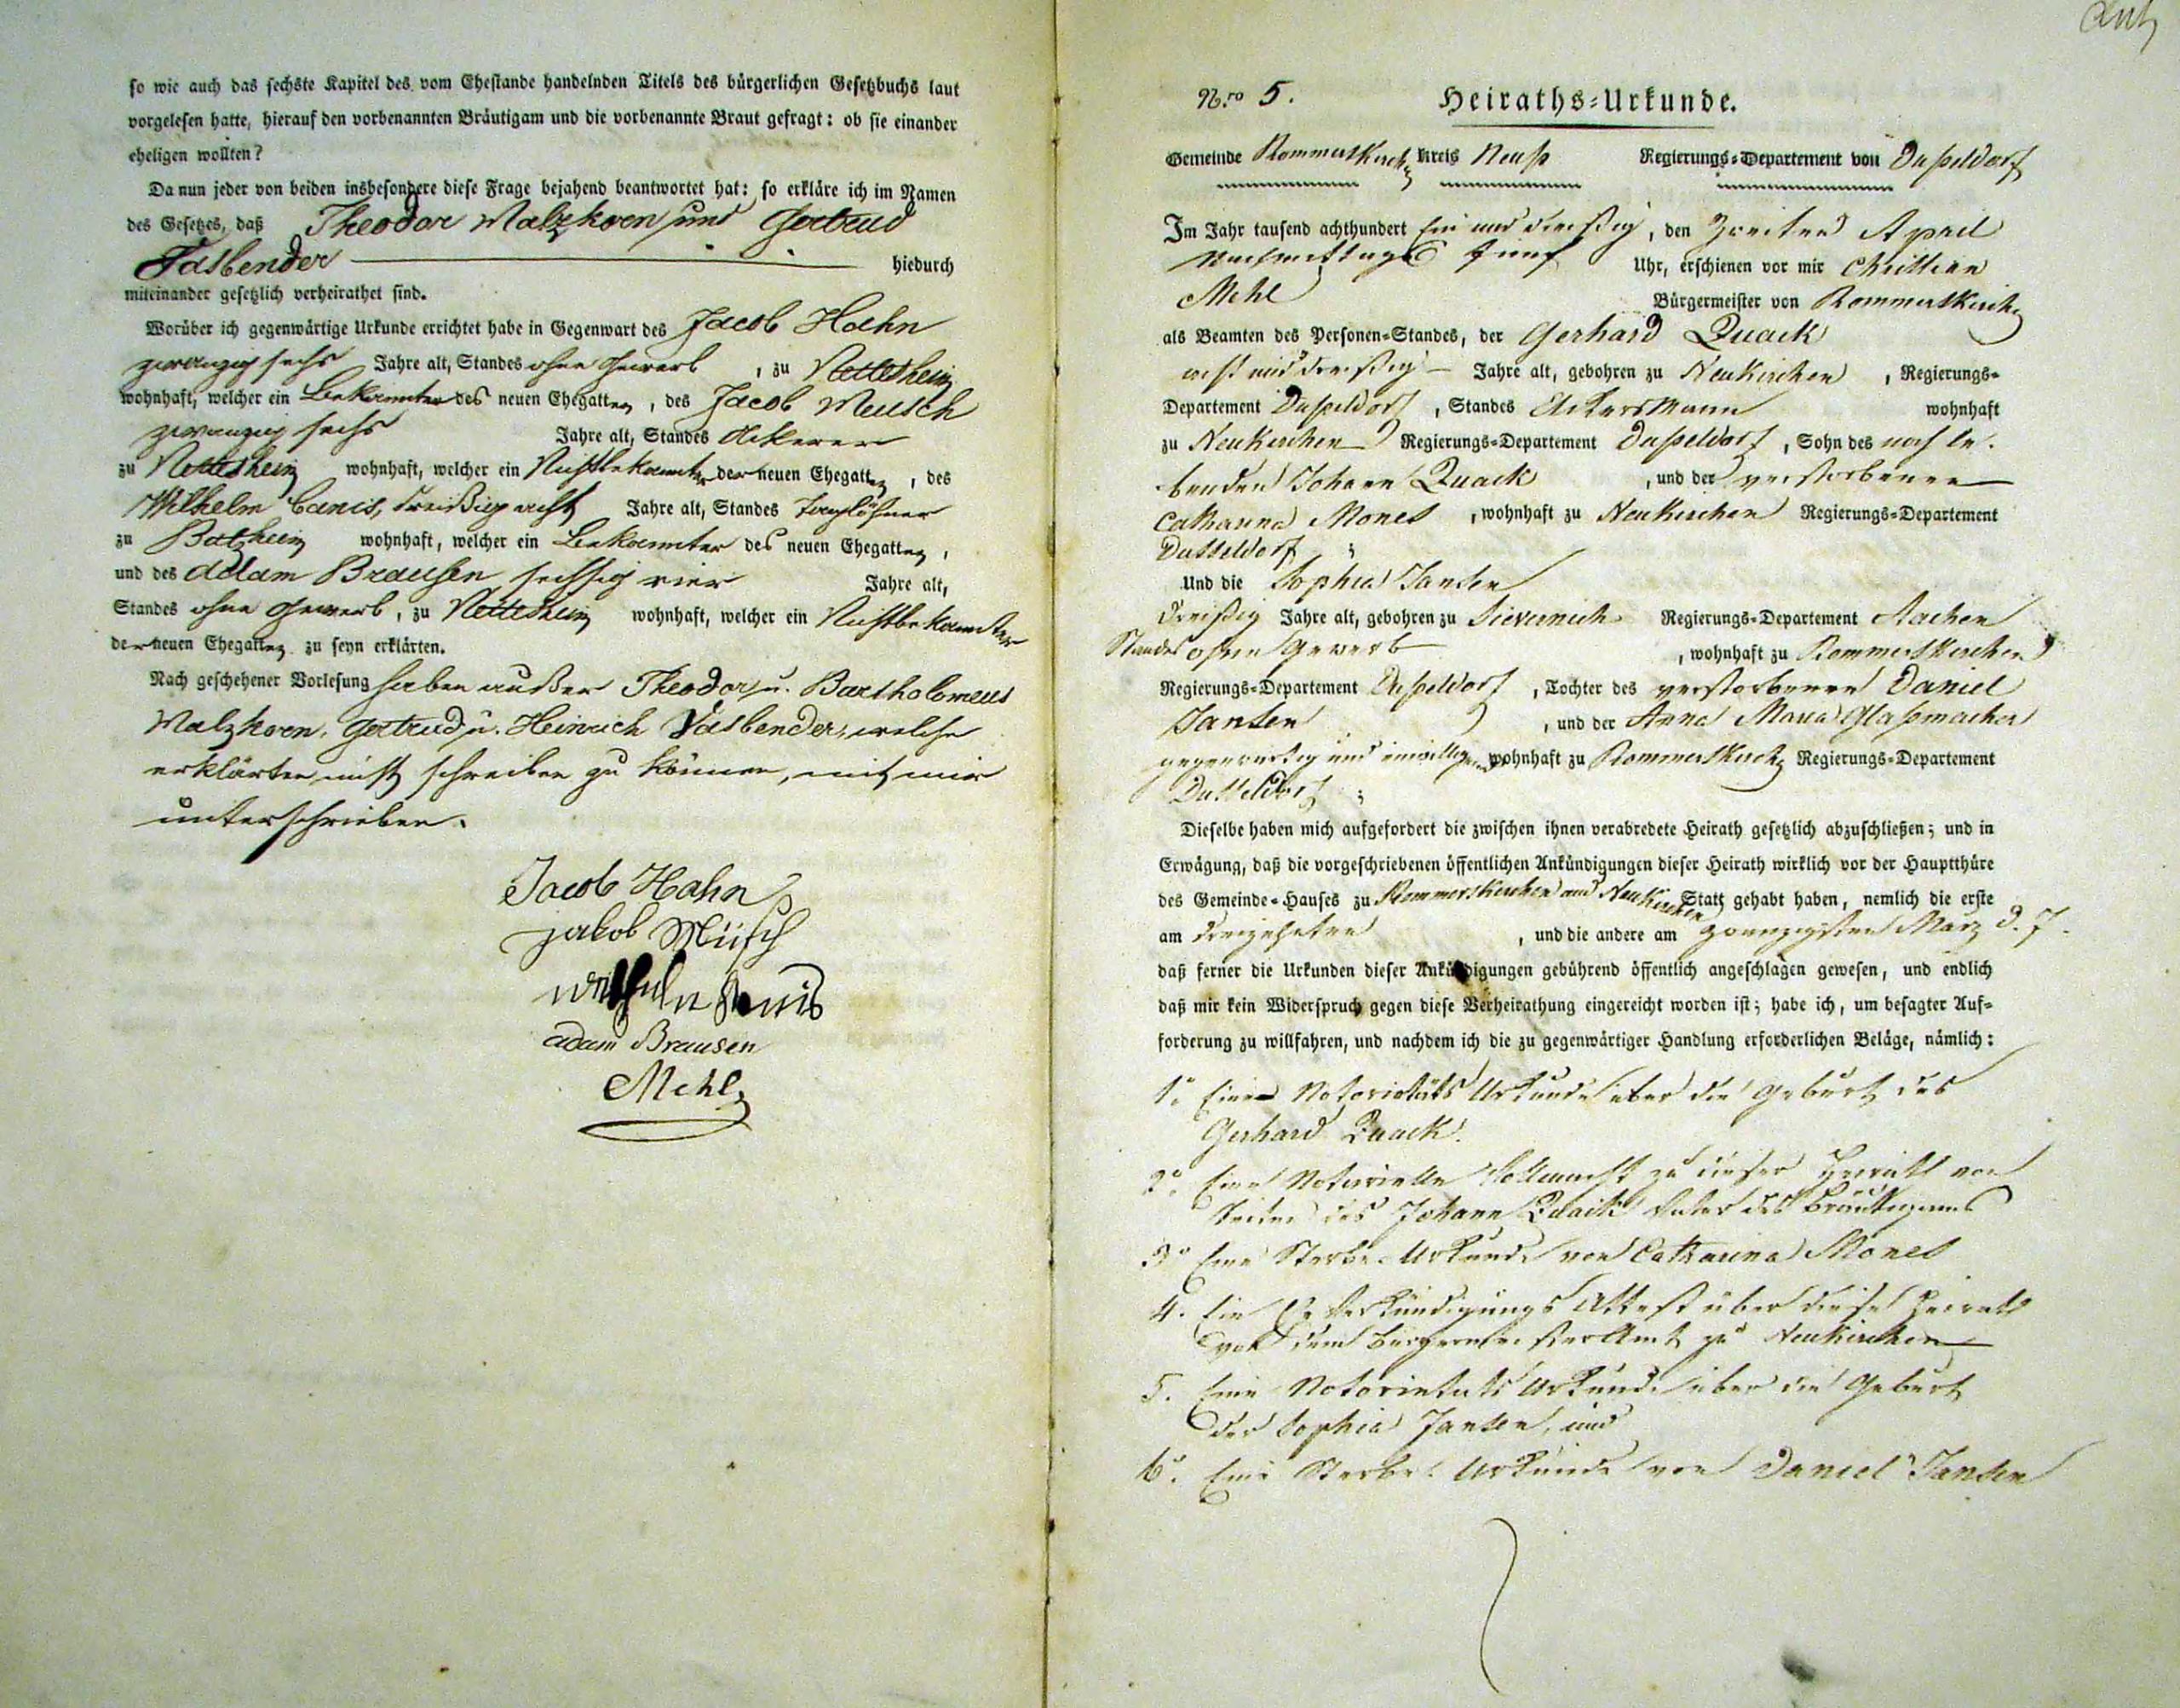 so wie auch das sechste Kapitel des vom Ehestande handelnden Titels des bürgerlichen Gesetzbuchs laut
vorgelesen hatte, hierauf den vorbenannten Bräutigam und die vorbenannte Braut gefragt: ob sie einander
eheligen wollten?
Da nun jeder von beiden insbesondere diese Frage bejahend beantwortet hat: so erkläre ich im Namen
des Gesetzes, daß Theodor Malzkorn und Gertrud
Fasbender hiedurch
miteinander gesetzlich verheirathet sind.
Worüber ich gegenwärtige Urkunde errichtet habe in Gegenwart des Jacob Hahn
zwanzig sechs Jahre alt, Standes ohne Gewerb, zu Nettesheim
wohnhaft, welcher ein Bekannter des neuen Ehegatten, des Jacob Meusch
zwanzig sechs Jahre alt, Standes Ackerer
zu Nettesheim wohnhaft, welcher ein Nichtbekannter der neuen Ehegatten, des
Wilhelm Canis, dreißig acht Jahre alt, Standes Taglöhner
zu Butzheim wohnhaft, welcher ein Bekannter des neuen Ehegatten,
und des Adam Brausen sechsig vier Jahre alt,
Standes ohne Gewerb, zu Nettesheim wohnhaft, welcher ein Nichtbekannter
der neuen Ehegatten zu seyn erklärten.
Nach geschehener Vorlesung haben außer Theodor u. Bartholomeus
Malzkorn, Gertrud u. Heinrich Fasbender, welche
erklärten nicht schreiben zu können, mit mir
unterschrieben.
Jacob Hahn
Jakob Müsch
Wilhelm Kanis
adam Brausen
Mehl
Nro 5. Heiraths-Urkunde.
Gemeinde Rommerskirchen Kreis Neuß Regierungs-Departement von Dußeldorf
Im Jahr tausend achthundert Ein und dreißig, den Zweiten April
Nachmittags fünf Uhr, erschienen vor mir Christian
Mehl Bürgermeister von Rommerskirchen
als Beamten des Personen-Standes, der Gerhard Quack
acht und dreißig Jahre alt, gebohren zu Neukirchen, Regierungs-
Departement Dußeldorf, Standes Ackersmann wohnhaft
zu Neukirchen Regierungs-Departement Dußeldorf, Sohn des noch le-
benden Johann Quack, und der verstorbenen
Catharina Mones, wohnhaft zu Neukirchen Regierungs-Departement
Dusseldorf;
Und die Sophia Jansen
dreißig Jahre alt, gebohren zu Sievernich Regierungs-Departement Aachen
Standes ohne Gewerb, wohnhaft zu Rommerskirchen
Regierungs-Departement Dußeldorf, Tochter des verstorbenen Daniel
Jansen, und der Anna Maria Glaßmacher
gegenwärtig und einwilligend wohnhaft zu Rommerskirchen Regierungs-Departement
Dusseldorf;
Dieselbe haben mich aufgefordert die zwischen ihnen verabredete Heirath gesetzlich abzuschließen; und in
Erwägung, daß die vorgeschriebenen öffentlichen Ankündigungen dieser Heirath wirklich vor der Hauptthüre
des Gemeinde-Hauses zu Rommerskirchen und Neukirchen Statt gehabt haben, nemlich die erste
am dreizehnten, und die andere am zwanzigsten März d. J.
daß ferner die Urkunden dieser Ankündigungen gebührend öffentlich angeschlagen gewesen, und endlich
daß mir kein Widerspruch gegen diese Verheirathung eingereicht worden ist; habe ich, um besagter Auf-
forderung zu willfahren, und nachdem ich die zu gegenwärtiger Handlung erforderlichen Beläge, nämlich:
1o Eine Notorietäts Urkunde über die Geburt des
Gerhard Quack.
2o. Eine Notarielle Vollmacht zu dieser Heirath von
Seiten des Johann Quack Vater des Bräutigams
3o Eine Sterbe-Urkunde von Catharina Mones
4. Ein Verkündigungs Attest über diese Heirath
von dem Bürgermeister Amt zu Neukirchen
5. Eine Notorietäts Urkunde über die Geburt
der Sophia Jansen, und
6o. Eine Sterbe-Urkunde von Daniel Jansen